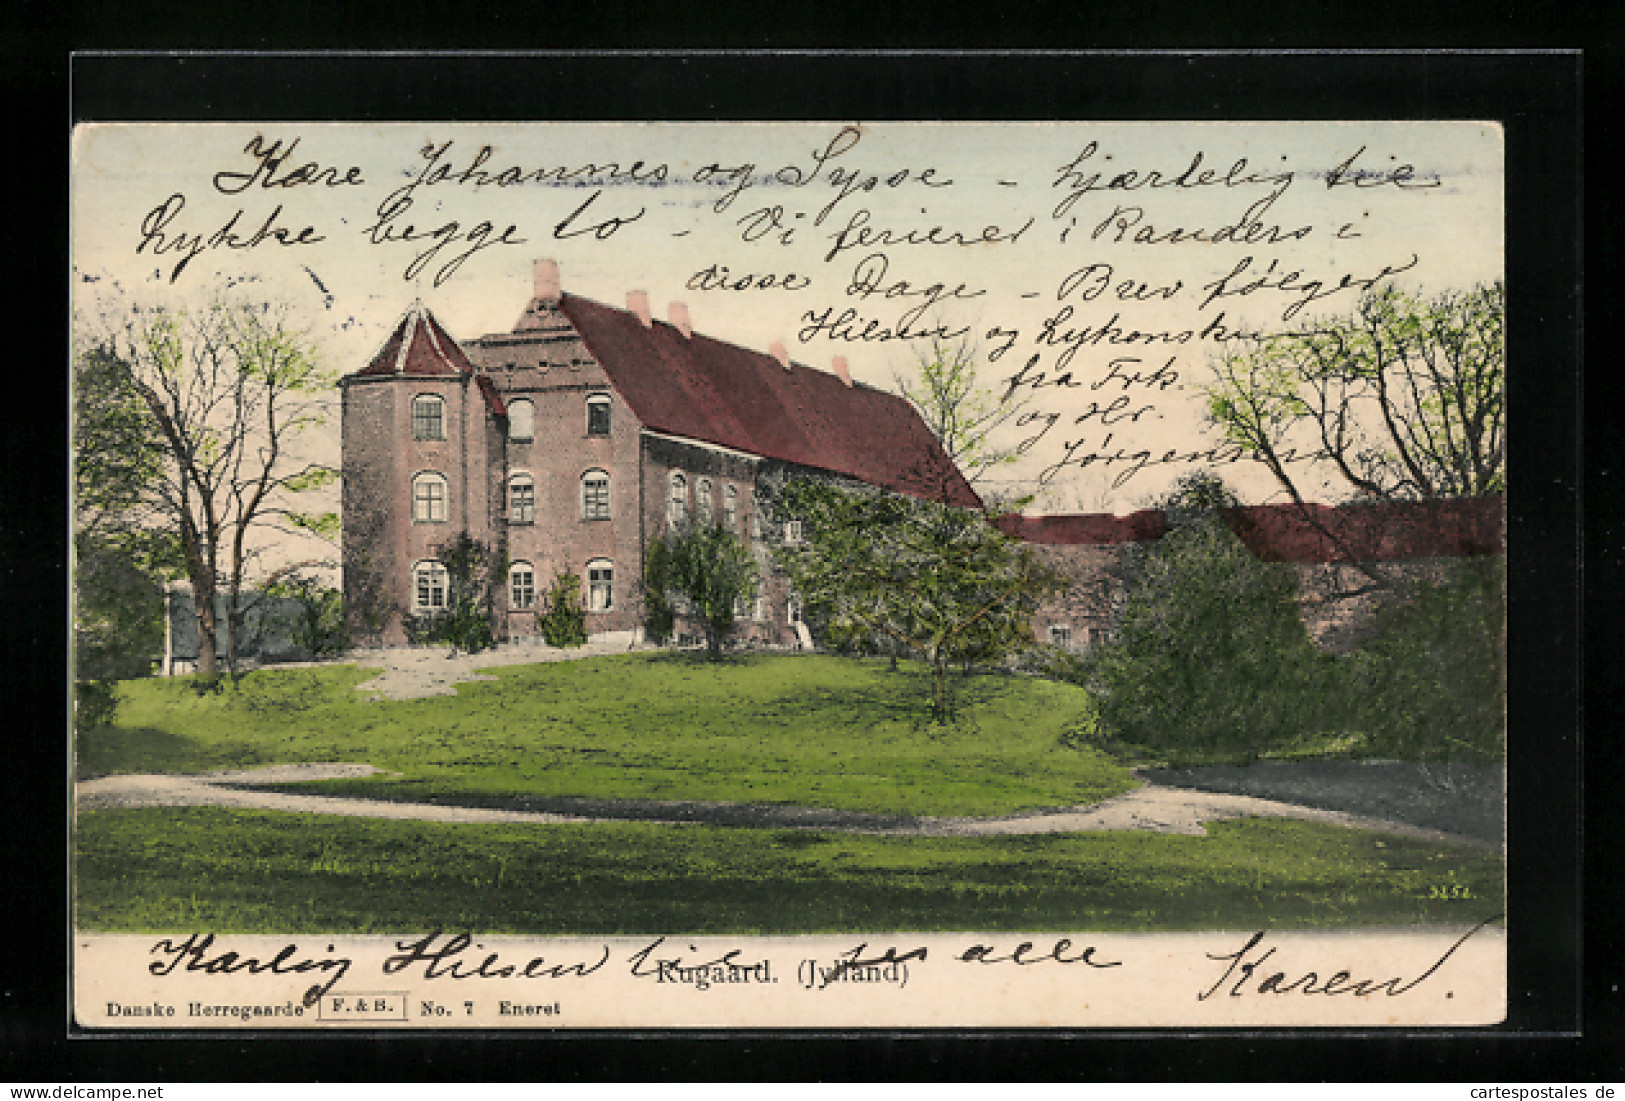 Kære Johannes og Sysse – hjærtelig til
Lykke begge to – Vi ferierer i Randers i
disse Dage – Brev følger
Hilsen og Lykønskn
fra Frk.
og Hr.
Jørgensen
3252.
Kærlig Hilsen til jer alle Karen.
Rugaard. (Jylland)
Danske Herregaarde F. & B. No. 7 Eneret
cartespostales de